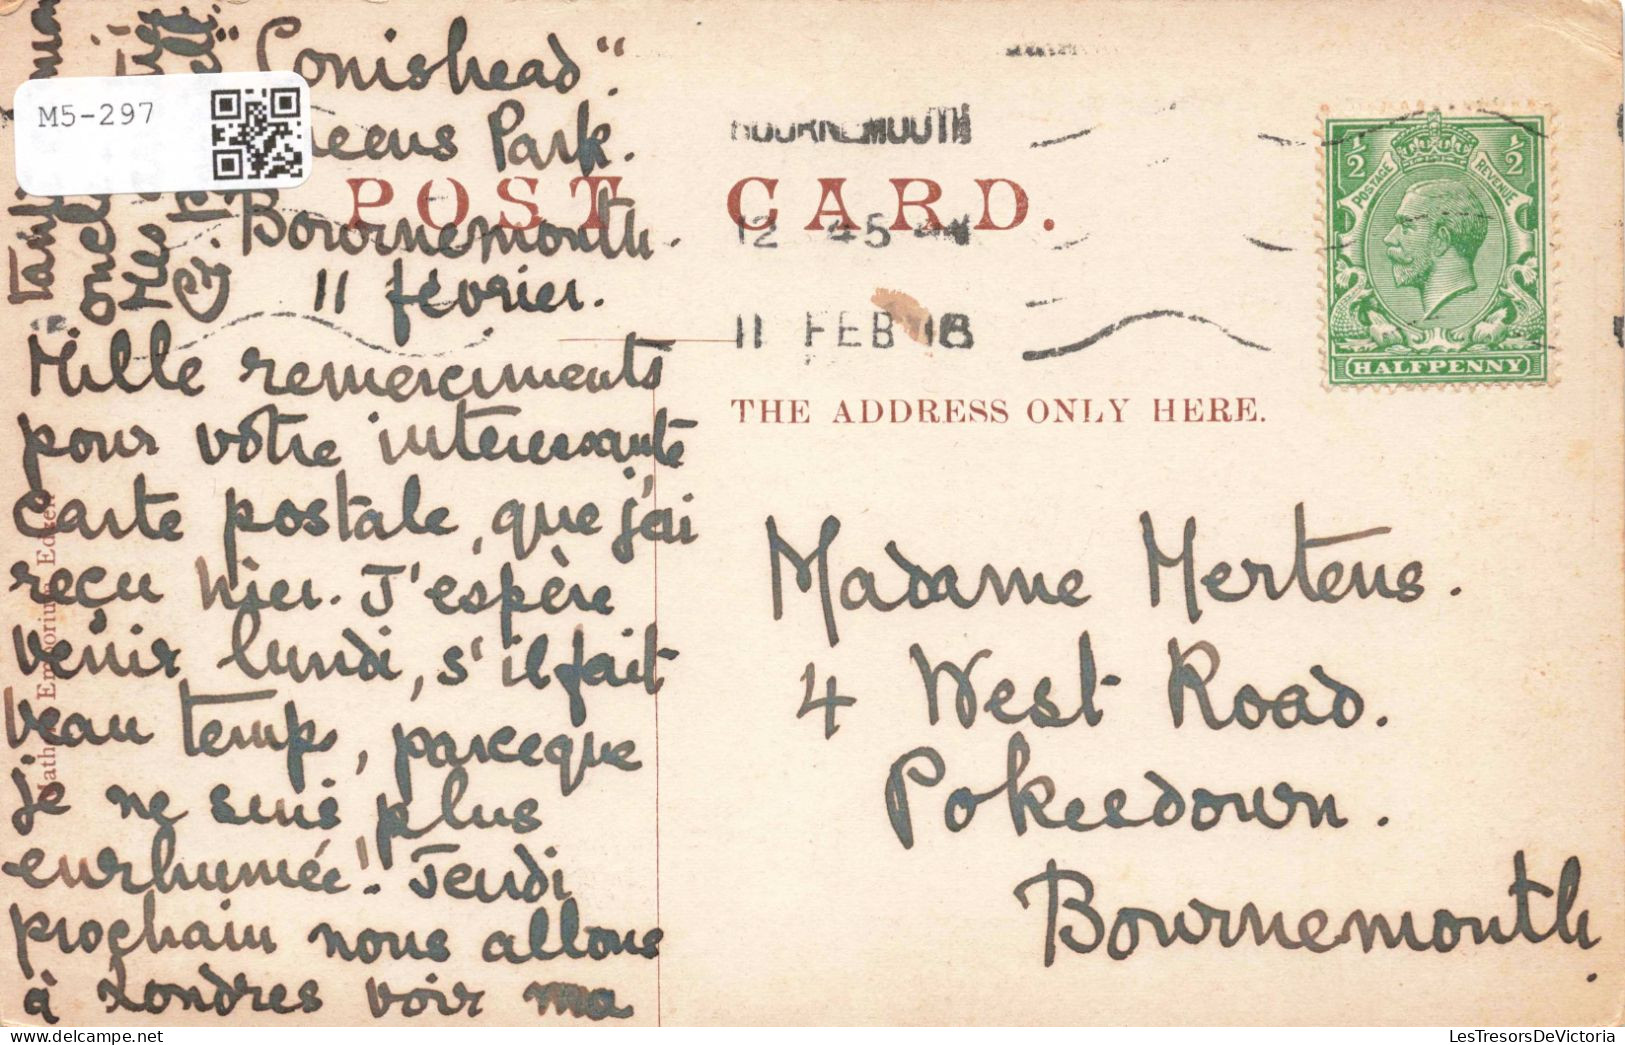 M5-297
"Conishead".
Queens Park.
Bournemouth.
11 février.
POST CARD.
BOURNEMOUTH
12 45
11 FEB 18
POSTAGE REVENUE
½ ½
HALFPENNY
THE ADDRESS ONLY HERE.
Mille remerciments
pour vôtre interessante
carte postale, que j'ai
reçu hier. J'espère
venir lundi, s'il fait
beau temps, parceque
je ne suis plus
enrhumée! Jeudi
prochain nous allons
à Londres voir ma
Madame Mertens.
4 West Road.
Pokesdown.
Bournemouth.
Emporium
LesTresorsDeVictoria